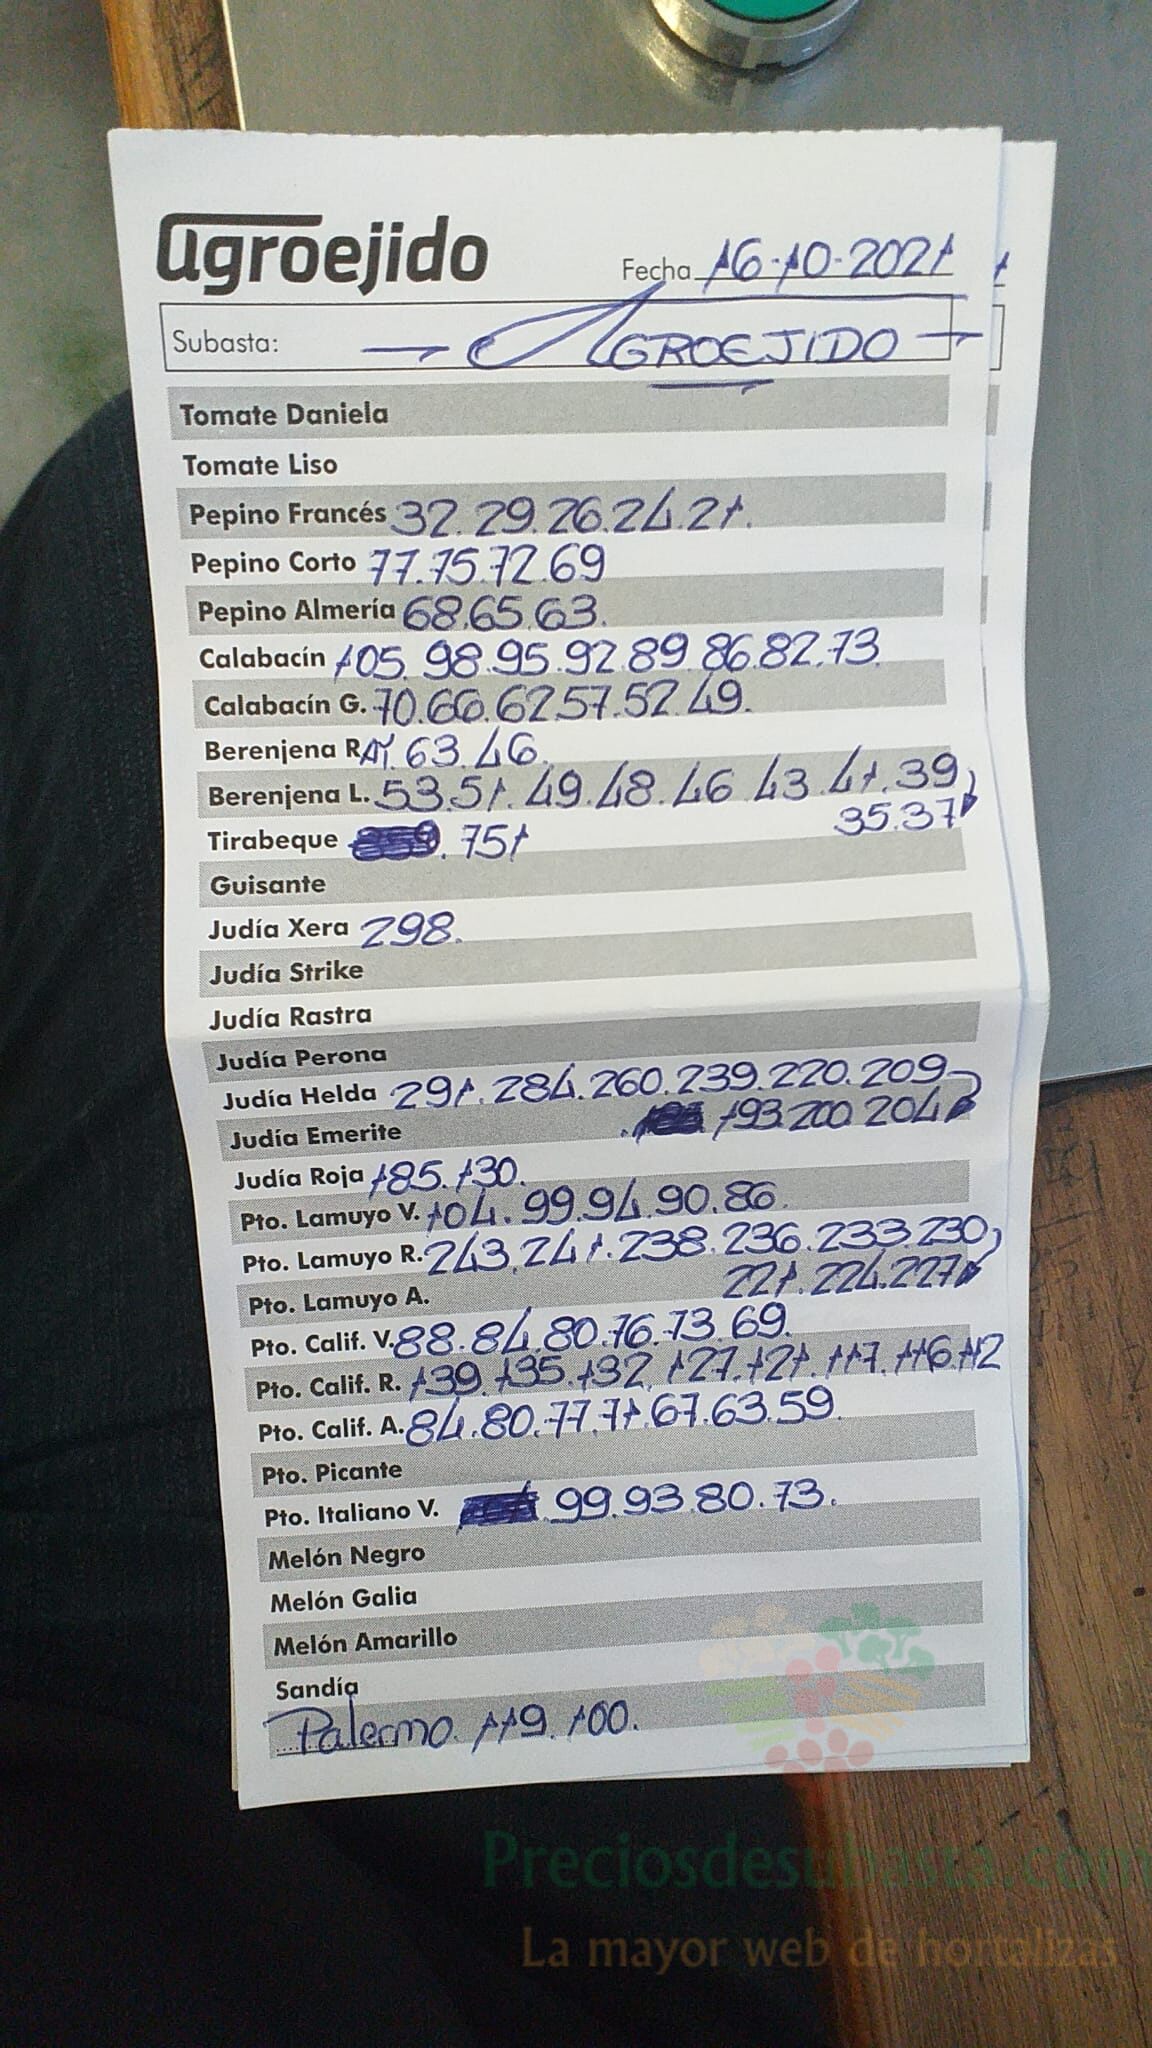 agroejido
Fecha 16-10-2021
Subasta: AGROEJIDO
Tomate Daniela
Tomate Liso
Pepino Francés 32.29.26.24.21.
Pepino Corto 77.75.72.69
Pepino Almería 68.65.63.
Calabacín 105.98.95.92.89.86.82.73.
Calabacín G. 70.66.62.57.52.49.
Berenjena RAY. 63.46.
Berenjena L. 53.51.49.48.46.43.41.39
35.37
Tirabeque .751
Guisante
Judía Xera 298.
Judía Strike
Judía Rastra
Judía Perona
Judía Helda 291.284.260.239.220.209
193.200.204
Judía Emerite
Judía Roja 185.130.
Pto. Lamuyo V. 104.99.94.90.86.
Pto. Lamuyo R. 243.241.238.236.233.230
221.224.227
Pto. Lamuyo A.
Pto. Calif. V. 88.84.80.76.73.69.
Pto. Calif. R. 139.135.132.127.121.117.116.112
Pto. Calif. A. 84.80.77.71.67.63.59.
Pto. Picante
Pto. Italiano V. .99.93.80.73.
Melón Negro
Melón Galia
Melón Amarillo
Sandía
Palermo. 119.100.
Preciosdesubasta.com
La mayor web de hortalizas